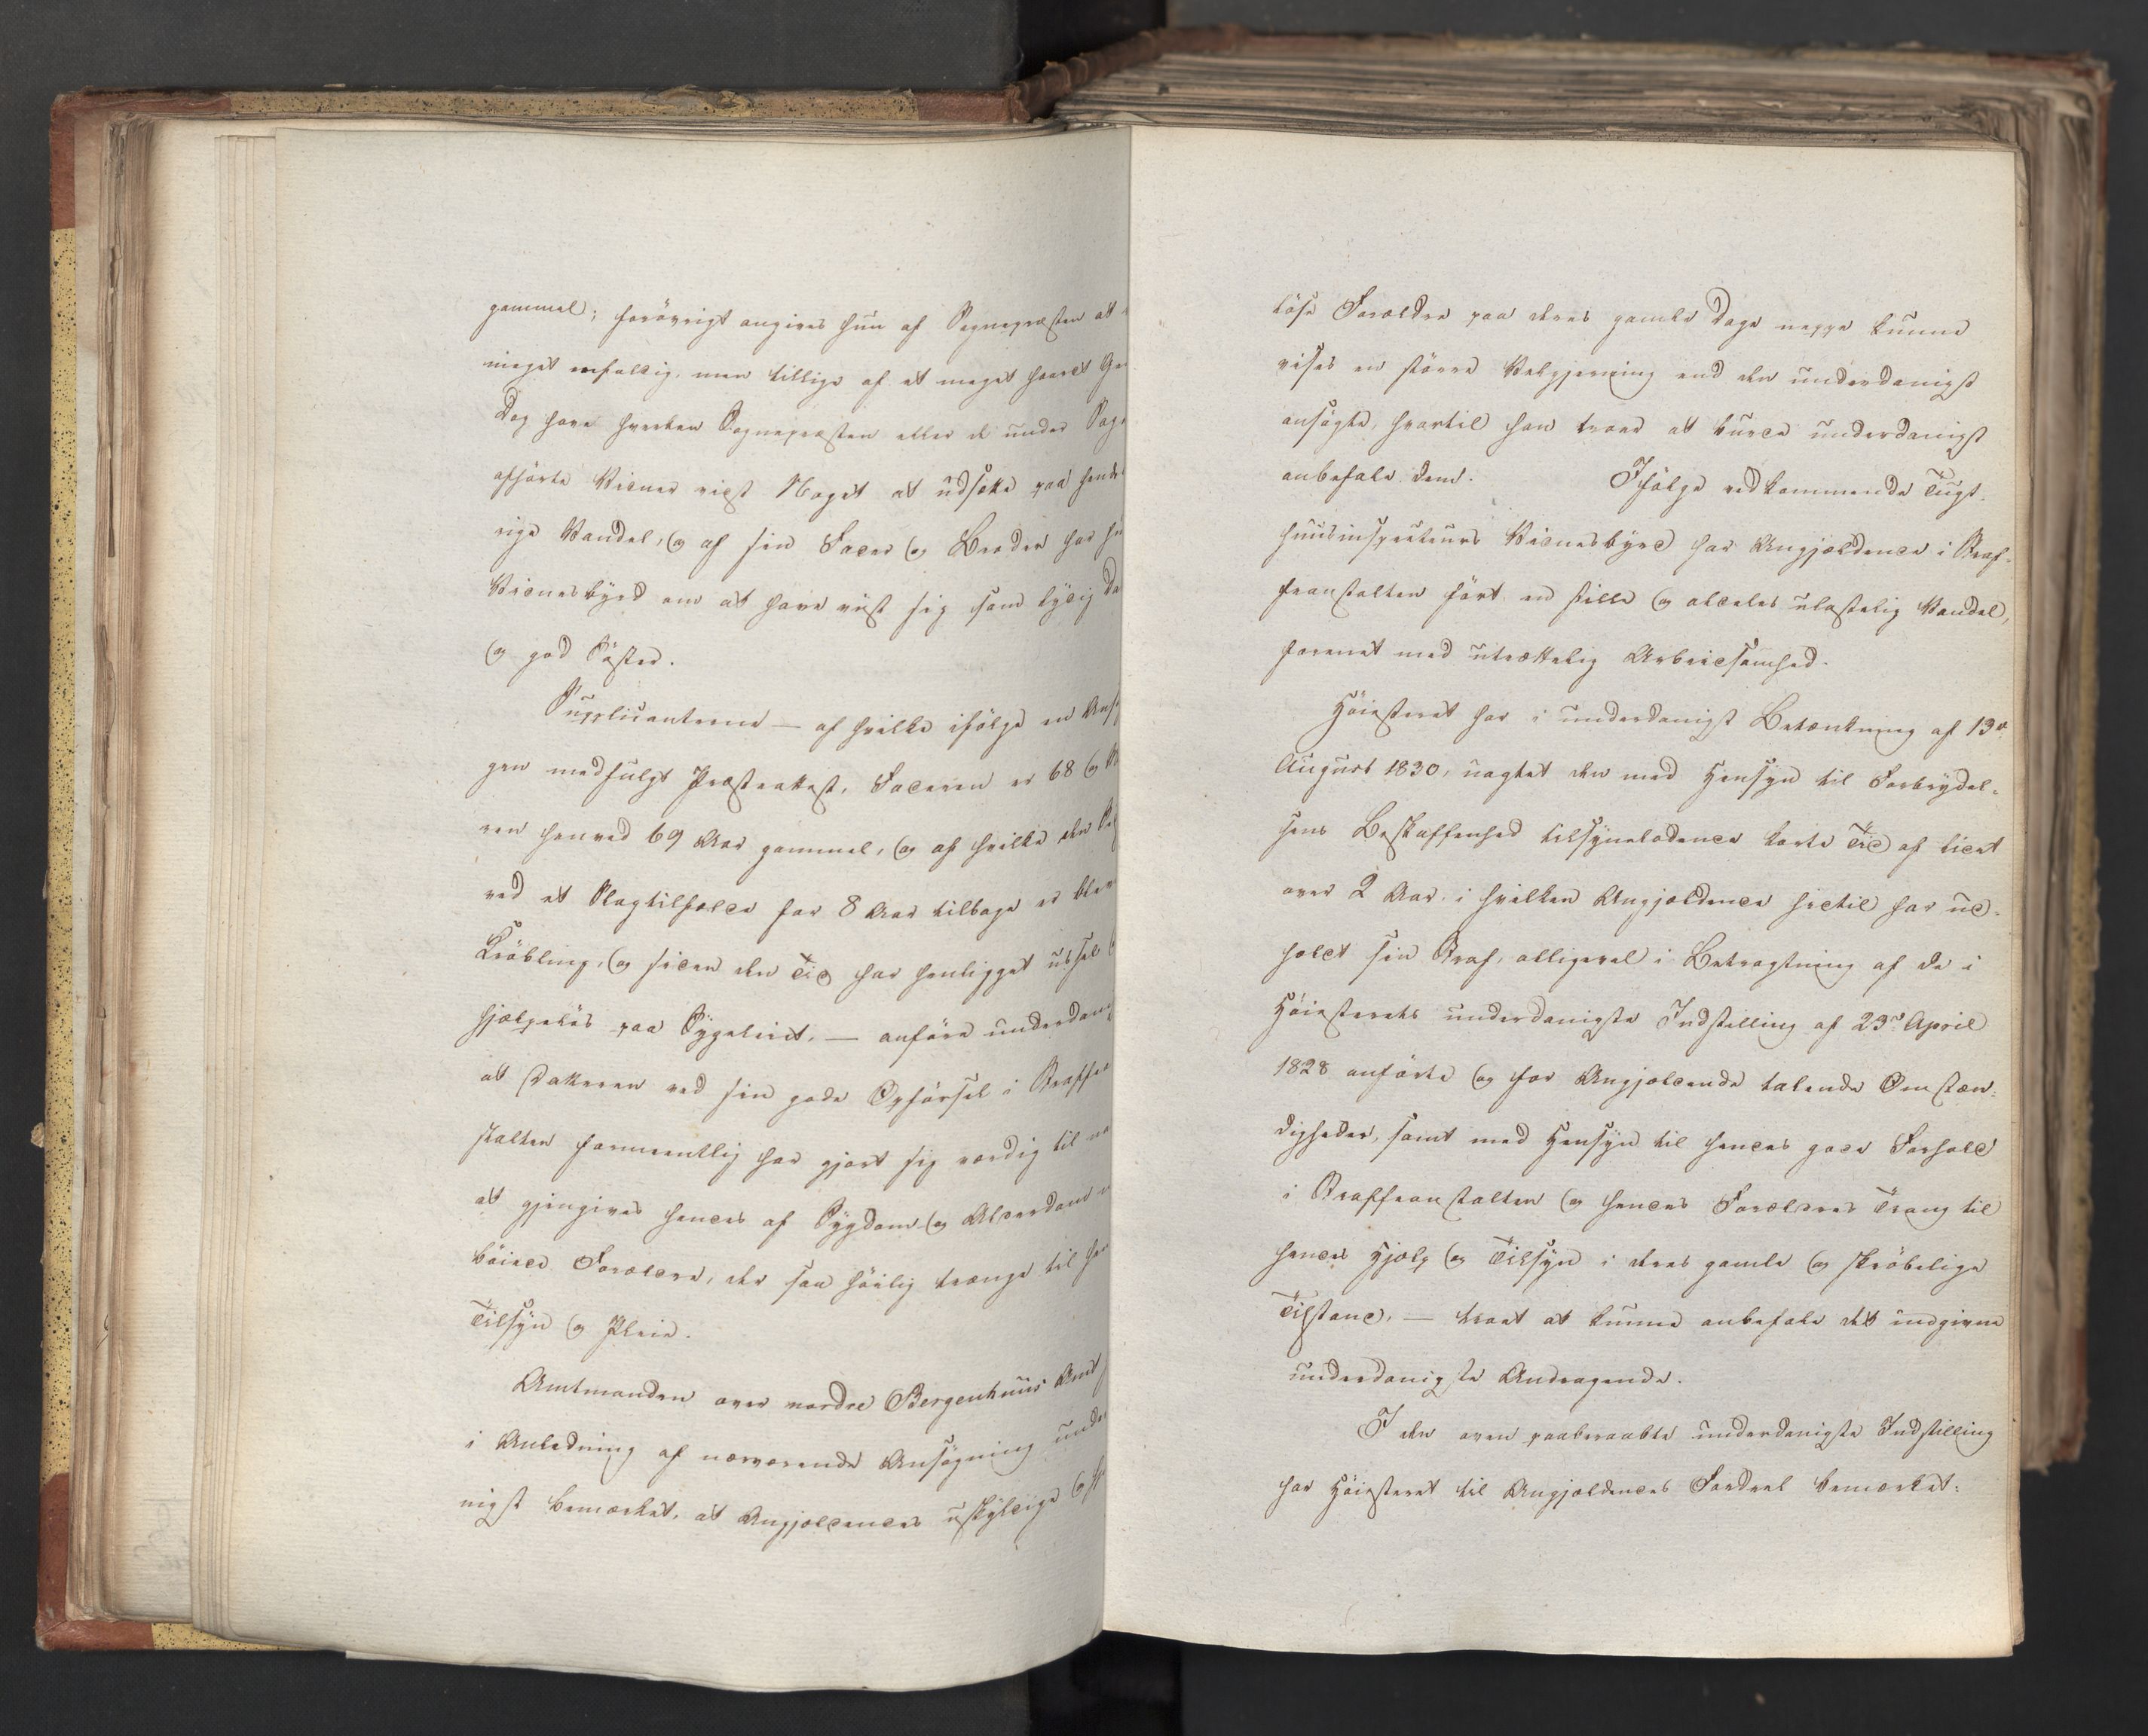 gammel; forövrigt angives hun af Sognepræsten at
meget enfoldig, men tillige af et meget haardt
Dog have hverken Sognepræsten eller de under
afhörte Vidner vidst Noget at udsætte paa hendes
rige Vandel, og af sin Fader og Broder har hun
Vidnesbyrd om at have viist sig som lydig
og god Söster.
Supplicanterne — af hvilke ifölge en
gen medfulgt Præsteattest, Faderen er 68 og
ren henved 69 Aar gammel, og af hvilke den
ved et Slagtilfælde for 8 Aar tilbage er bleven
Kröbling, og siden den Tid har henligget ussel
hjælpelös paa Sygeleiet, — anföre underdan
at Datteren ved sin gode Opförsel i Straffe
stalten formeentlig har gjort sig værdig til
at gjengives hendes af Sygdom og Alderdom
böiede Forældre, der saa höilig trænge til
Tilsyn og Pleie.
Amtmanden over nordre Bergenhuus Amt
i Anledning af nærværende Ansögning under
nigst bemærket, at Angjældendes uskyldige og
löse Forældre paa deres gamle Dage neppe kunne
vises en större Velgjerning end den underdanigst
ansögte, hvortil han troer at burde underdanigst
anbefale dem. Ifölge vedkommende Tugt-
huusinspecteurs Vidnesbyrd har Angjældende i Straf-
feanstalten fört en stille og aldeles ulastelig Vandel,
forenet med utrættelig Arbeidsomhed.
Höiesteret har i underdanigst Betænkning af 13de
August 1830, uagtet den med Hensyn til Forbrydel-
sens Beskaffenhed tilsyneladende korte Tid af lidet
over 2 Aar, i hvilken Angjældende hidtil har ud-
holdt sin Straf, alligevel i Betragtning af de i
Höiesterets underdanigste Indstilling af 23de April
1828 anförte og for Angjældende talende Omstæn-
digheder, samt med Hensyn til hendes gode Forhold
i Straffeanstalten og hendes Forældres Trang til
hendes Hjælp og Tilsyn i deres gamle og skröbelige
Tilstand, — troet at kunne anbefale det indgivne
underdanigste Andragende.
I den oven paaberaabte underdanigste Indstilling
har Höiesteret til Angjældendes Fordeel bemærket: